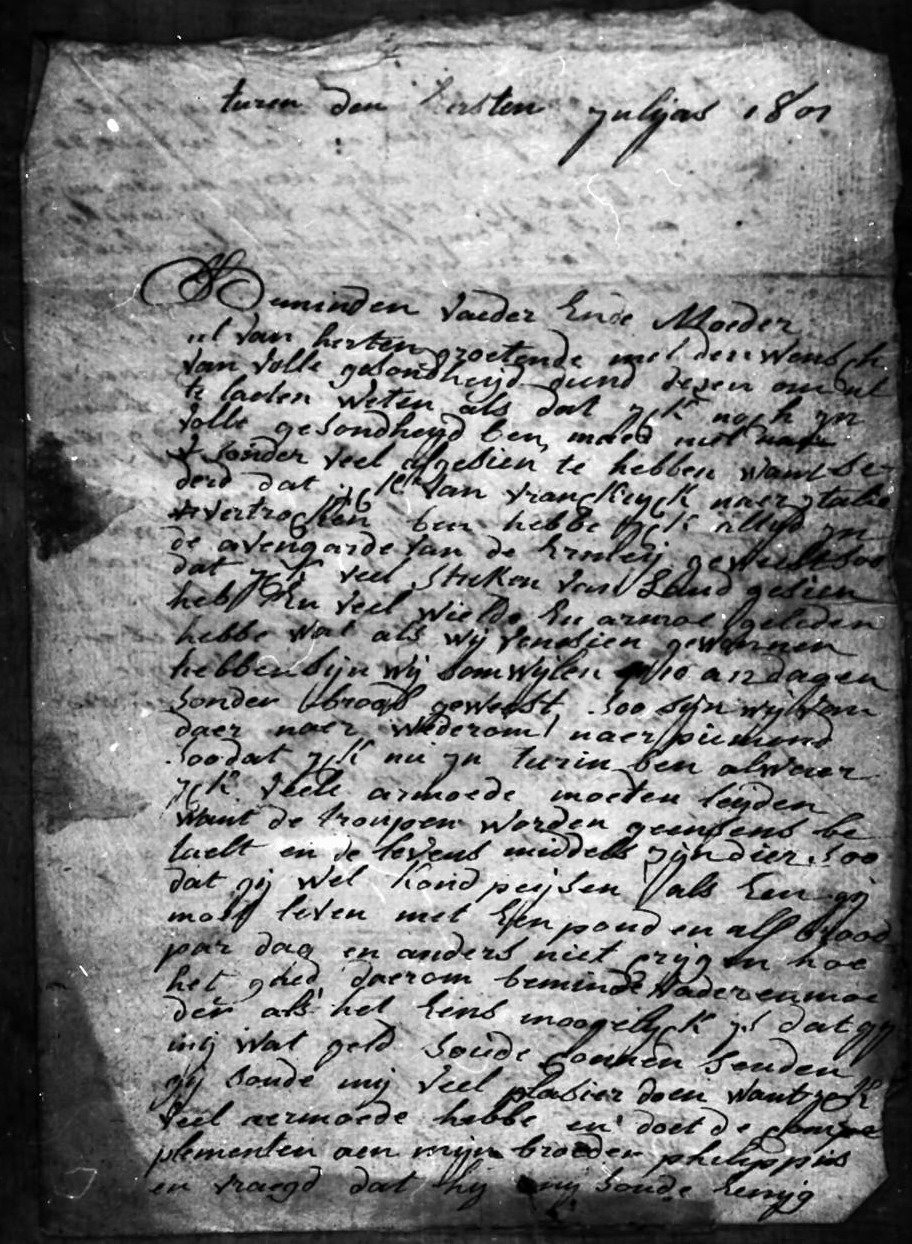 turin den Eersten julijus 1801
Beminden Vaeder Ende Moeder
ul van herten groetende met den wensch
van volle gesondheijd dund desen om ul
te laeten weten als dat jck noch yn
volle gesondheyd ben, maer niet
sonder veel afgesien te hebben want se-
derd dat jck van vranckryck naer jtalie
vertrocken ben hebbe jck altijd yn
de avengarde van de Ermeij geweest soo
dat jck veel stucken van Land gesien
heb En veel En armoe geleden
hebbe wat als wij venesien gewonnen
hebben sijn wij somwijlen 10 a 12 dagen
sonder brood geweest soo sijn wij van
daer naer wederom naer piemond
soodat jck nu yn turin ben alweer
jck veele armoede moeten leyden
want de troupen worden geensens be
taelt en de levens middels zijn dier soo
dat gij wel kond peijsen als Een gij
moet leven met Een pond en alf brood
par dag en anders niet crijgen hoe
het gaed daerom beminde Vader en moe
der als het Eens moogelyck js dat gy
mij wat geld soude connen senden
gij soude mij veel plasier doen want jck
veel aermoede hebbe en doet de compe
plementen aen mijn broeder philippus
en vraegd dat hij mij soude Eenijg